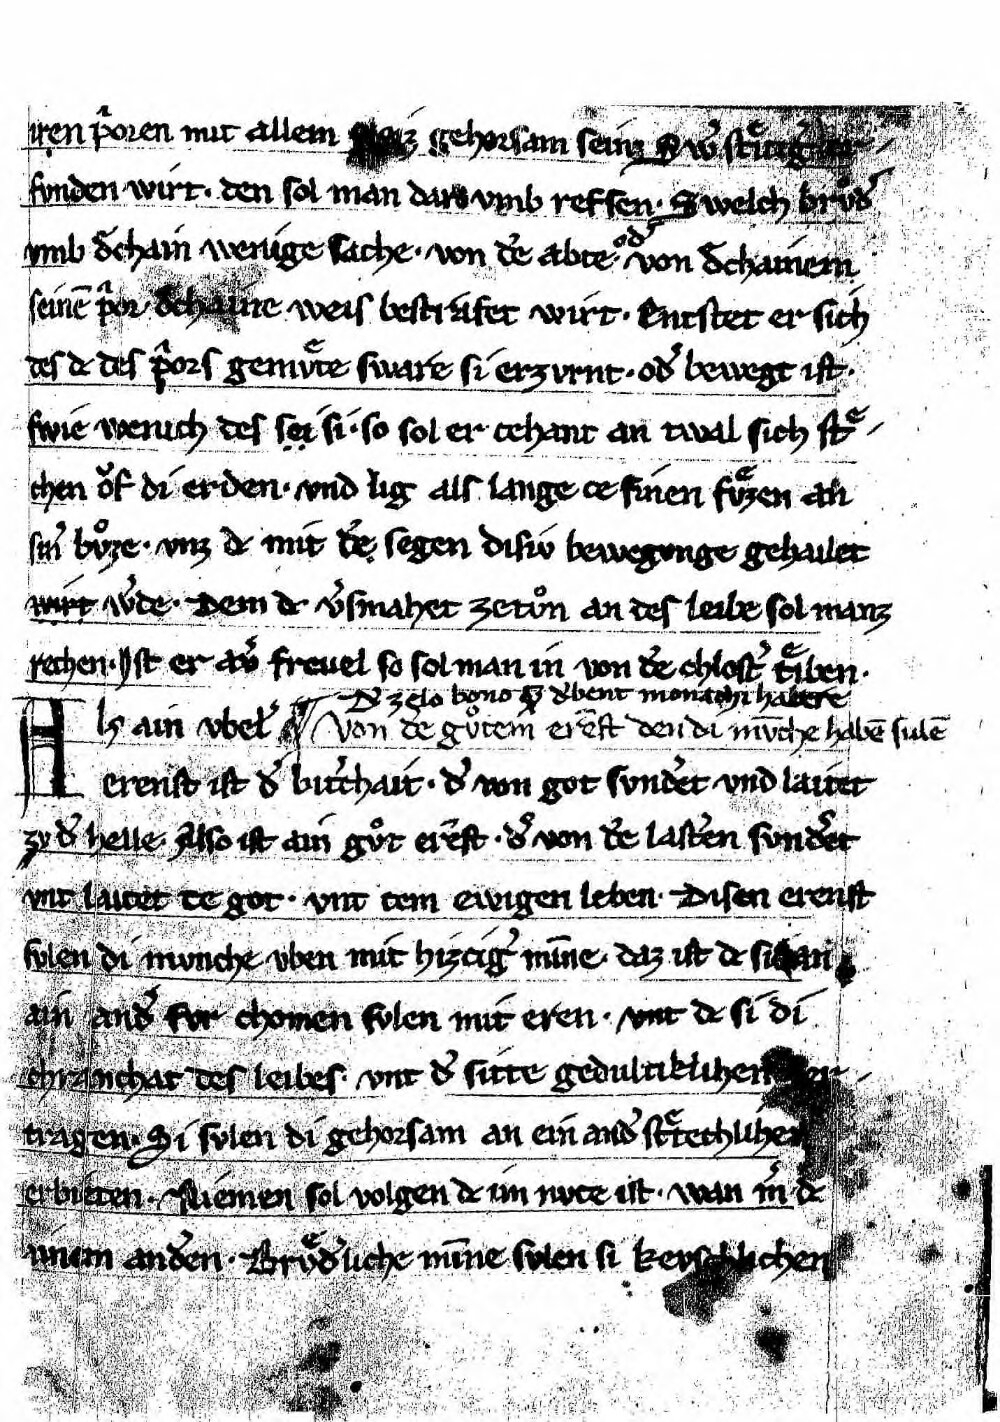 iren p̾oren mit allem gehorsam sein
funden wirt · den sol man dar vmb reffen · Swelch brůd̾
vmb d̾chain wenige sache · von d̾e abte · od̾ von d̾chainem
seinē p̾or d̾chaine weis bestrafet wirt · Entstet er sich
des dc des p̾ors gemvͤte sware si erzvrnt · od̾ bewegt ist ·
swie wenich des sei si · so sol er cehant an twal sich stͤ
chen ovf di erden · vnd lig als lange ce sinen fvͤzen an
sin̾ bvͦze · vnz dc mit d̾e segen disiv bewegvnge gehailet
wirt w̾de · Dem dc v̾smahet zetvͦn an des leibe sol manz
rechen · Ist er av̾ frevel so sol man in von d̾e chlost̾ tͤiben ·
D̾ zelo bono q̾ d̾bent monachi habere
Als ain vbel̾ Von d̾e gvͦtem er̾est den di mvͤche habē sulē
erenst ist d̾ bitt̾chait · d̾ von got svnd̾et vnd laitet
zv d̾ helle · Also ist ain gvͦt er̾est · d̾ von d̾e last̾en svnd̾et
vnt laitet ce got · vnt cem ewigen leben · Disen erenst
svlen di mvnche vben mit hizcig̾ min̄e · daz ist dc si an
ain and̾ fvr chomen svlen mit eren · vnt dc si di
chranchat des leibes · vnt d̾ sitte gedultiklihen
tragen · Si svlen di gehorsam an ein and̾ stͤtechlihen
erbieten · Niemen sol volgen dc im nvce ist · wan m̾ dc
ainem and̾en · Brvͤd̾liche min̄e svlen si kevschlichen